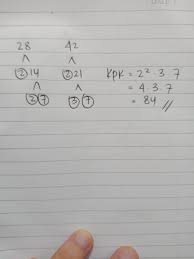 28 42
2 14 2 21
2 7 3 7
KPK = 2² · 3 · 7
= 4 · 3 · 7
= 84